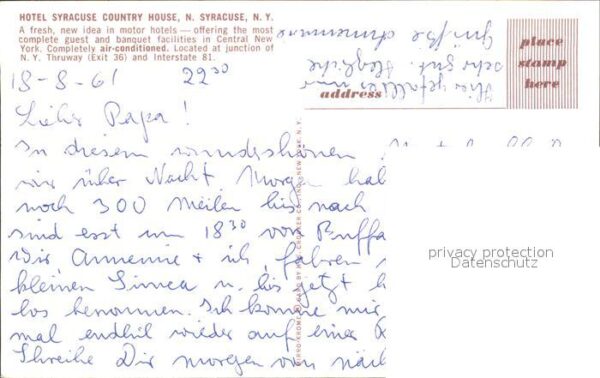 HOTEL SYRACUSE COUNTRY HOUSE, N. SYRACUSE, N. Y.
A fresh, new idea in motor hotels — offering the most
complete guest and banquet facilities in Central New
York. Completely air-conditioned. Located at junction of
N. Y. Thruway (Exit 36) and Interstate 81.
18-8-61 22 30
Lieber Papa!
In diesem wunderschönen
wir über Nacht. Morgen hab
noch 300 Meilen bis nach
sind erst um 18 30 von Buffa
Wir Annemie + ich, fahren
kleinen Simca u. bis jetzt
los benommen. Ich könnte mir
mal endlich wieder auf einer
Schreibe Dir morgen von
Hier gefällt es mir
sehr gut. Herzliche
Grüße
place
stamp
here
address
privacy protection
Datenschutz